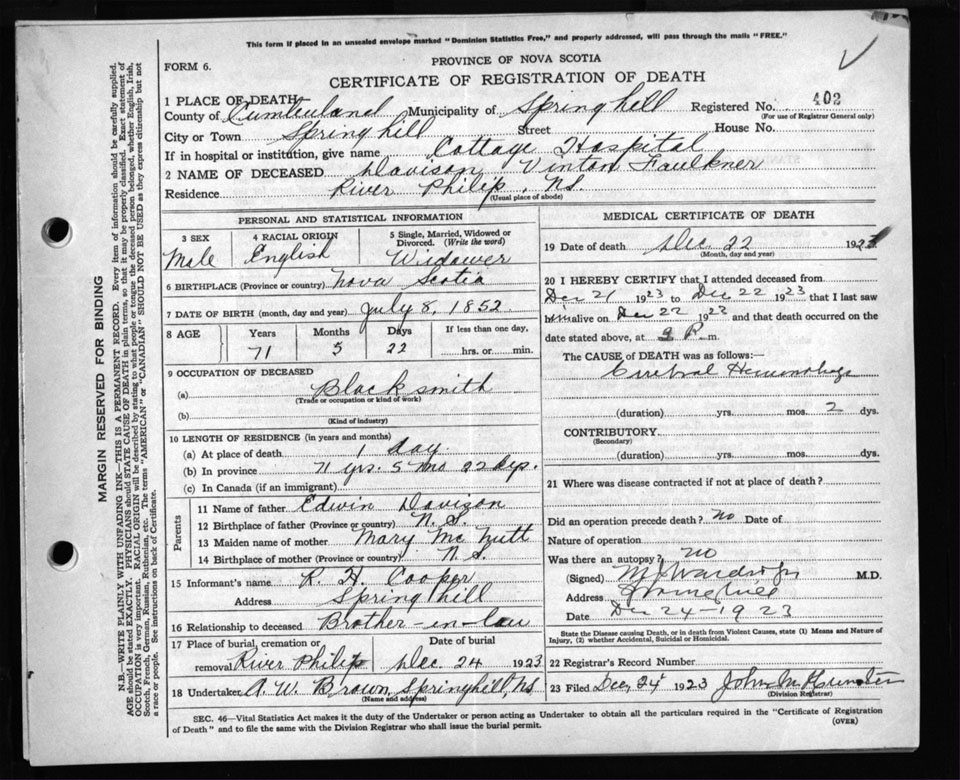 This form if placed in an unsealed envelope marked "Dominion Statistics Free," and properly addressed, will pass through the mails "FREE."
FORM 6.
PROVINCE OF NOVA SCOTIA
CERTIFICATE OF REGISTRATION OF DEATH
1 PLACE OF DEATH—
County of Cumberland Municipality of Springhill Registered No. 402
(For use of Registrar General only)
City or Town Springhill Street House No.
If in hospital or institution, give name Cottage Hospital
2 NAME OF DECEASED Davison Vinton Faulkner
Residence River Philip, NS
(Usual place of abode)
PERSONAL AND STATISTICAL INFORMATION
3 SEX 4 RACIAL ORIGIN 5 Single, Married, Widowed or Divorced. (Write the word)
Male English Widower
6 BIRTHPLACE (Province or country) Nova Scotia
7 DATE OF BIRTH (month, day and year) July 8, 1852
8 AGE Years Months Days If less than one day,
71 5 22 hrs. or min.
9 OCCUPATION OF DECEASED
(a) Blacksmith
(Trade or occupation or kind of work)
(b)
(Kind of industry)
10 LENGTH OF RESIDENCE (in years and months)
(a) At place of death 1 day
(b) In province 71 yrs. 5 mo 22 dys.
(c) In Canada (if an immigrant)
Parents
11 Name of father Edwin Davison
12 Birthplace of father (Province or country) N. S.
13 Maiden name of mother Mary McNutt
14 Birthplace of mother (Province or country) N. S.
15 Informant's name R. H. Cooper
Address Springhill
16 Relationship to deceased Brother-in-law
17 Place of burial, cremation or removal River Philip Date of burial Dec 24 1923
18 Undertaker A. W. Brown, Springhill, NS
(Name and address)
MEDICAL CERTIFICATE OF DEATH
19 Date of death Dec 22 1923
(Month, day and year)
20 I HEREBY CERTIFY that I attended deceased from
Dec 21 1923 to Dec 22 1923 that I last saw
him alive on Dec 22 1923 and that death occurred on the
date stated above, at P. m.
The CAUSE of DEATH was as follows:—
Cerebral Hemorrhage
(duration) yrs. mos. 2 dys.
CONTRIBUTORY
(Secondary)
(duration) yrs. mos. dys.
21 Where was disease contracted if not at place of death?
Did an operation precede death? no Date of
Nature of operation
Was there an autopsy? no
(Signed) M.D.
Address Springhill
Date Dec 24-1923
State the Disease causing Death, or in death from Violent Causes, state (1) Means and Nature of Injury, (2) whether Accidental, Suicidal or Homicidal.
22 Registrar's Record Number
23 Filed Dec, 24 1923 John M
(Division Registrar)
SEC. 46—Vital Statistics Act makes it the duty of the Undertaker or person acting as Undertaker to obtain all the particulars required in the "Certificate of Registration
of Death" and to file the same with the Division Registrar who shall issue the burial permit.
(OVER)
MARGIN RESERVED FOR BINDING
N.B.—WRITE PLAINLY WITH UNFADING INK—THIS IS A PERMANENT RECORD. Every item of information should be carefully supplied.
AGE should be stated EXACTLY. PHYSICIANS should STATE CAUSE OF DEATH in plain terms, so that it may be properly classified. Exact statement of
OCCUPATION is very important. RACIAL ORIGIN will be described by stating to what people or tongue the deceased person belonged, whether English, Irish,
Scotch, French, German, Russian, Ruthenian, etc. The terms "AMERICAN" or "CANADIAN" SHOULD NOT BE USED as they express citizenship but not
a race or people. See instructions on back of Certificate.